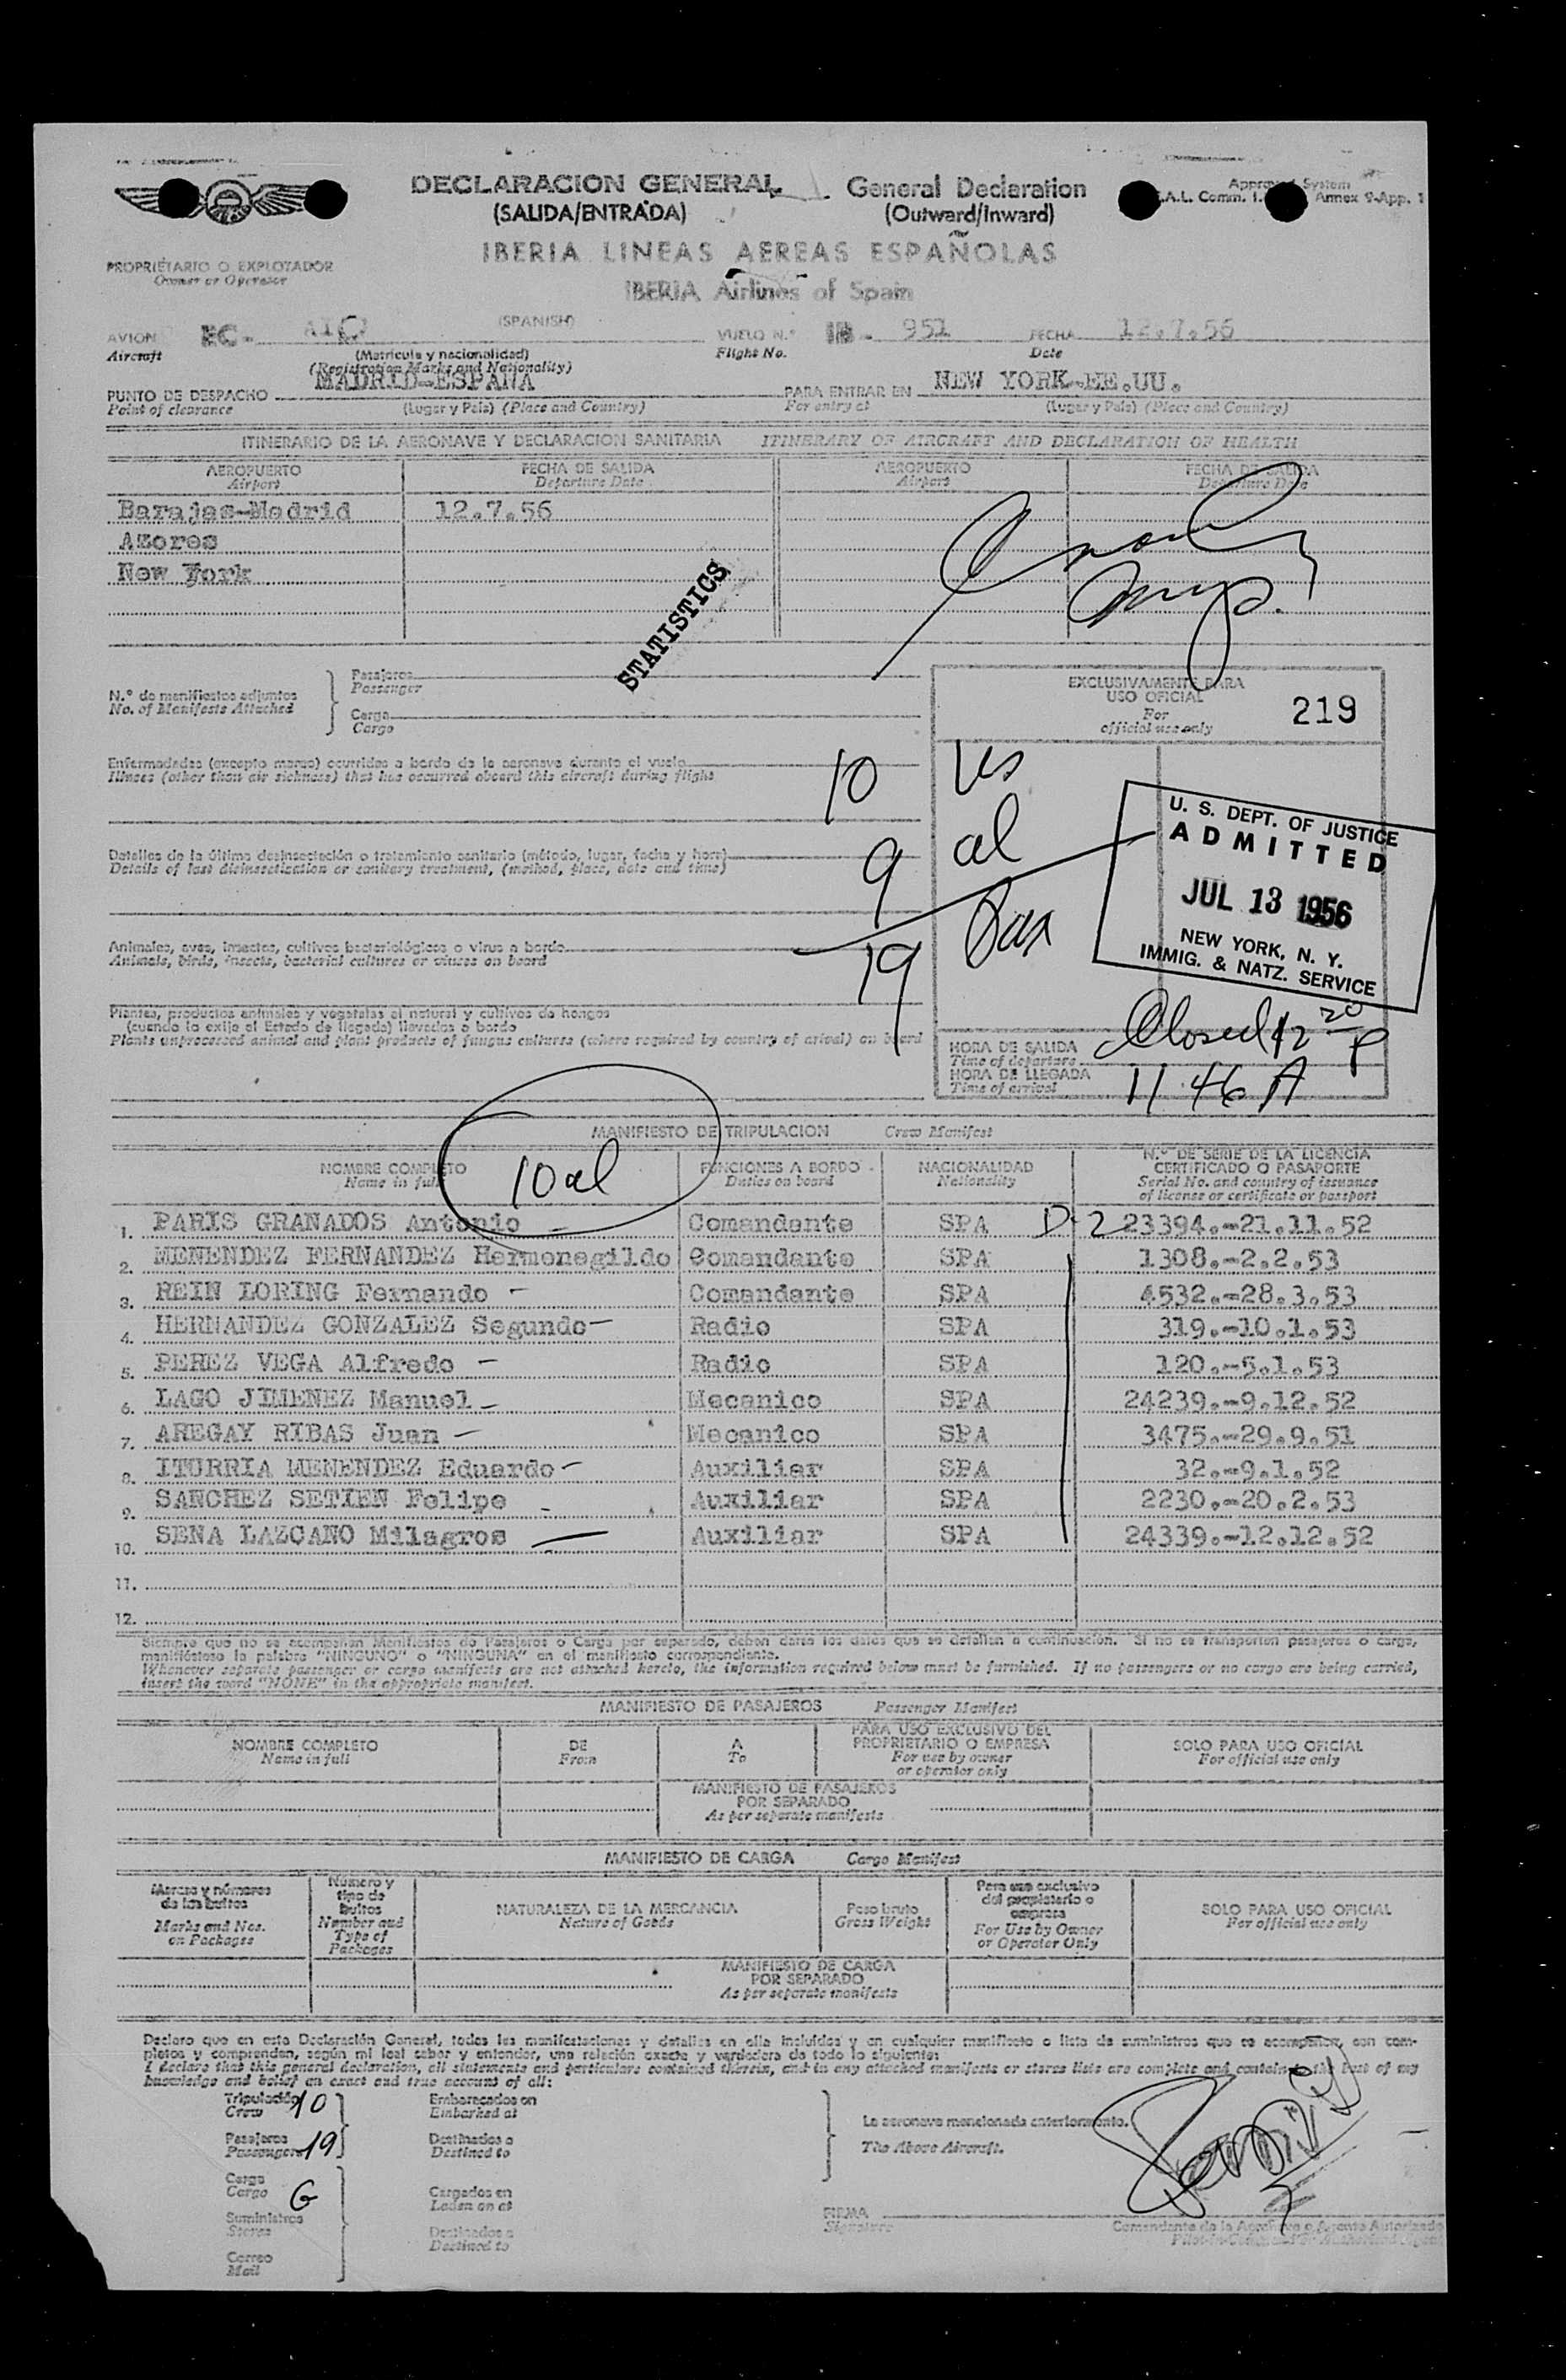 DECLARACION GENERAL General Declaration
(SALIDA/ENTRADA) (Outward/Inward)
Approved System
Annex 9-App. 1
IBERIA LINEAS AEREAS ESPAÑOLAS
IBERIA Airlines of Spain
PROPRIETARIO O EXPLOTADOR
Owner or Operator
(SPANISH)
AVION EC- VUELO N.º IB - 951 FECHA 12.7.56
Aircraft (Matricula y nacionalidad) Flight No. Date
(Registration Marks and Nationality)
PUNTO DE DESPACHO MADRID-ESPAÑA PARA ENTRAR EN NEW YORK-EE.UU.
Point of clearance (Lugar y País) (Place and Country) For entry at (Lugar y País) (Place and Country)
ITINERARIO DE LA AERONAVE Y DECLARACION SANITARIA ITINERARY OF AIRCRAFT AND DECLARATION OF HEALTH
AEROPUERTO FECHA DE SALIDA AEROPUERTO FECHA DE SALIDA
Airport Departure Date Airport Departure Date
Barajas-Madrid 12.7.56
Azores
New York
STATISTICS
N.º de manifiestos adjuntos
No. of Manifests Attached
Pasajeros
Passenger
Carga
Cargo
EXCLUSIVAMENTE PARA
USO OFICIAL
For
official use only
219
Enfermedades (excepto mareo) ocurridas a bordo de la aeronave durante el vuelo
Illness (other than air sickness) that has occurred aboard this aircraft during flight
10 us
Detalles de la última desinsectación o tratamiento sanitario (método, lugar, fecha y hora)
Details of last disinsectization or sanitary treatment, (method, place, date and time)
9 al
Animales, aves, insectos, cultivos bacteriológicos o virus a bordo
Animals, birds, insects, bacterial cultures or viruses on board
19 Pax
U. S. DEPT. OF JUSTICE
ADMITTED
JUL 13 1956
NEW YORK, N. Y.
IMMIG. & NATZ. SERVICE
Plantas, productos animales y vegetales al natural y cultivos de hongos
(cuando lo exija el Estado de llegada) llevados a bordo
Plants unprocessed animal and plant products of fungus cultures (where required by country of arival) on board
HORA DE SALIDA
Time of departure
Closed 12 20 P
HORA DE LLEGADA
Time of arrival
11.46 A
MANIFIESTO DE TRIPULACION Crew Manifest
10 al
NOMBRE COMPLETO FUNCIONES A BORDO NACIONALIDAD N.º DE SERIE DE LA LICENCIA
Name in full Duties on board Nationality CERTIFICADO O PASAPORTE
Serial No. and country of issuance
of license or certificate or passport
1. PARIS GRANADOS Antonio Comandante SPA D-2 23394.-21.11.52
2. MENENDEZ FERNANDEZ Hermenegildo Comandante SPA 1308.-2.2.53
3. REIN LORING Fernando - Comandante SPA 4532.-28.3.53
4. HERNANDEZ GONZALEZ Segundo - Radio SPA 319.-10.1.53
5. PEREZ VEGA Alfredo - Radio SPA 120.-5.1.53
6. LAGO JIMENEZ Manuel - Mecanico SPA 24239.-9.12.52
7. AREGAY RIBAS Juan - Mecanico SPA 3475.-29.9.51
8. ITURRIA MENENDEZ Eduardo - Auxiliar SPA 32.-9.1.52
9. SANCHEZ SETIEN Felipe - Auxiliar SPA 2230.-20.2.53
10. SENA LAZCANO Milagros - Auxiliar SPA 24339.-12.12.52
11.
12.
Siempre que no se acompañen Manifiestos de Pasajeros o Carga por separado, deben darse los datos que se detallan a continuación. Si no se transportan pasajeros o carga,
manifiéstese la palabra "NINGUNO" o "NINGUNA" en el manifiesto correspondiente.
Whenever separate passenger or cargo manifests are not attached hereto, the information required below must be furnished. If no passengers or no cargo are being carried,
insert the word "NONE" in the appropriate manifest.
MANIFIESTO DE PASAJEROS Passenger Manifest
NOMBRE COMPLETO DE A PARA USO EXCLUSIVO DEL SOLO PARA USO OFICIAL
Name in full From To PROPRIETARIO O EMPRESA For official use only
For use by owner
or operator only
MANIFIESTO DE PASAJEROS
POR SEPARADO
As per separate manifests
MANIFIESTO DE CARGA Cargo Manifest
Marcas y números
de los bultos
Marks and Nos.
on Packages
Número y
tipo de
bultos
Number and
Type of
Packages
NATURALEZA DE LA MERCANCIA
Nature of Goods
Peso bruto
Gross Weight
Para uso exclusivo
del propietario o
empresa
For Use by Owner
or Operator Only
SOLO PARA USO OFICIAL
For official use only
MANIFIESTO DE CARGA
POR SEPARADO
As per separate manifests
Declaro que en esta Declaración General, todas las manifestaciones y detalles en ella incluidos y en cualquier manifiesto o lista de suministros que se acompañen, son com-
pletos y comprenden, según mi leal saber y entender, una relación exacta y verdadera de todo lo siguiente:
I declare that this general declaration, all statements and particulars contained therein, and in any attached manifests or stores lists are complete and contain to the best of my
knowledge and belief an exact and true account of all:
Tripulación
Crew 10
Embarcados en
Embarked at
Pasajeros
Passengers 19
Destinados a
Destined to
La aeronave mencionada anteriormente.
The Above Aircraft.
Carga
Cargo G
Cargados en
Laden on at
Suministros
Stores
Destinados a
Destined to
Correo
Mail
FIRMA
Signature
Comandante de la Aeronave o Agente Autorizado